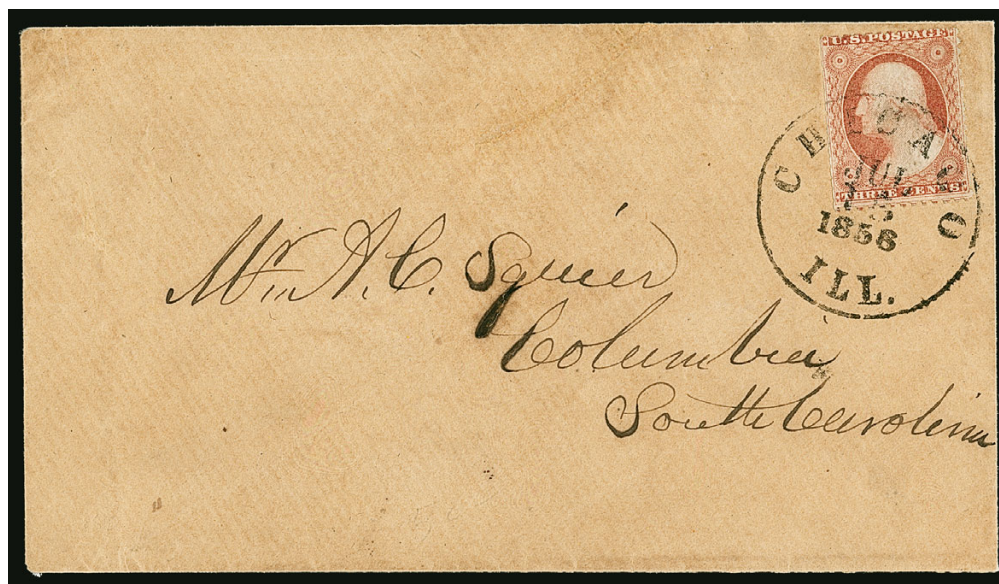 U.S. POSTAGE
THREE CENTS
CHICAGO
JUL
1856
ILL.
A. C. Squier
Columbia
South Carolina